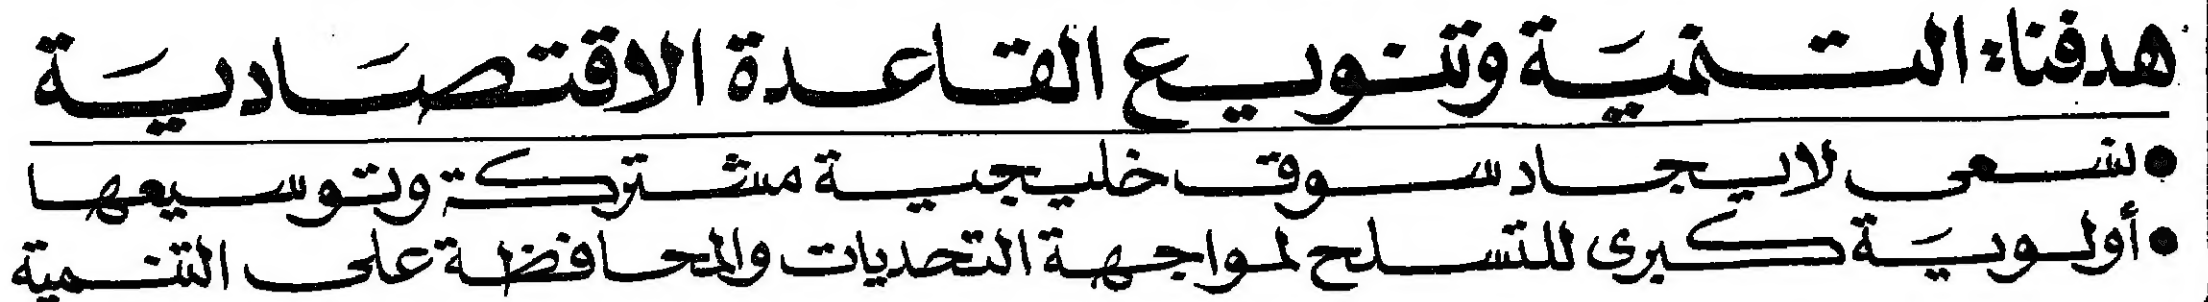 هدفنا: التنميَة وتنويع القاعدة الاقتصَاديَة
• نسعى لايجاد سوق خليجية مشتركة وتوسيعها
• أولويَة كبرى للتسلح لمواجهة التحديات والمحافظة على التنمية